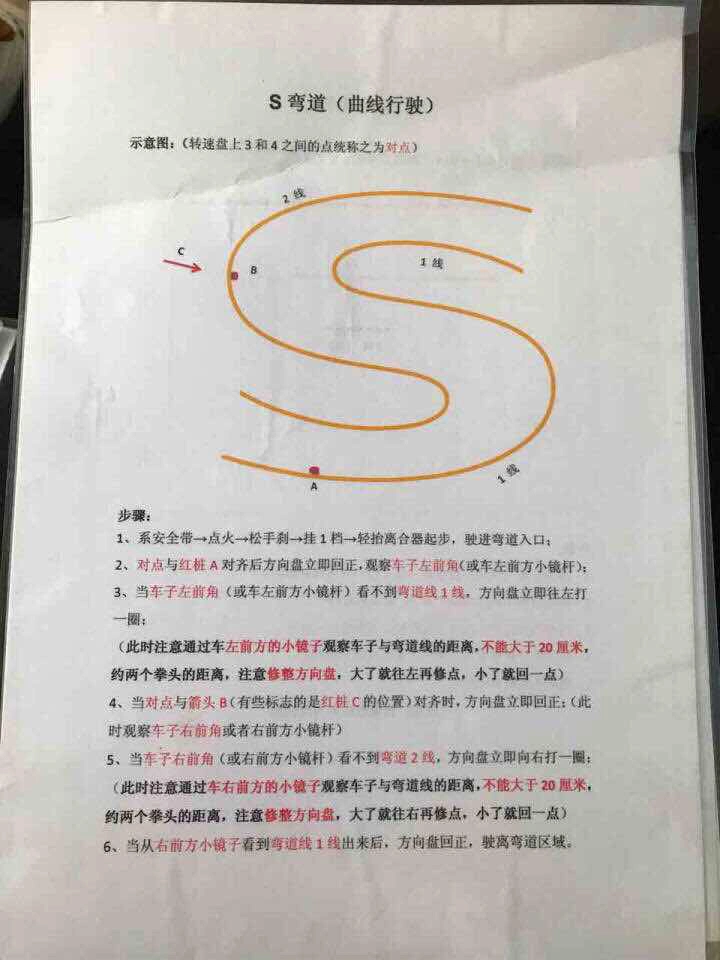 S 弯道（曲线行驶）
示意图：（转速盘上 3 和 4 之间的点统称之为对点）
2 线
C
B
1 线
1 线
A
步骤：
1、系安全带→点火→松手刹→挂 1 档→轻抬离合器起步，驶进弯道入口；
2、对点与红桩 A 对齐后方向盘立即回正，观察车子左前角（或车左前方小镜杆）；
3、当车子左前角（或车左前方小镜杆）看不到弯道线 1 线，方向盘立即往左打
一圈；
（此时注意通过车左前方的小镜子观察车子与弯道线的距离，不能大于 20 厘米，
约两个拳头的距离，注意修整方向盘，大了就往左再修点，小了就回一点）
4、当对点与箭头 B（有些标志的是红桩 C 的位置）对齐时，方向盘立即回正；（此
时观察车子右前角或者右前方小镜杆）
5、当车子右前角（或右前方小镜杆）看不到弯道 2 线，方向盘立即向右打一圈；
（此时注意通过车右前方的小镜子观察车子与弯道线的距离，不能大于 20 厘米，
约两个拳头的距离，注意修整方向盘，大了就往右再修点，小了就回一点）
6、当从右前方小镜子看到弯道线 1 线出来后，方向盘回正，驶离弯道区域。